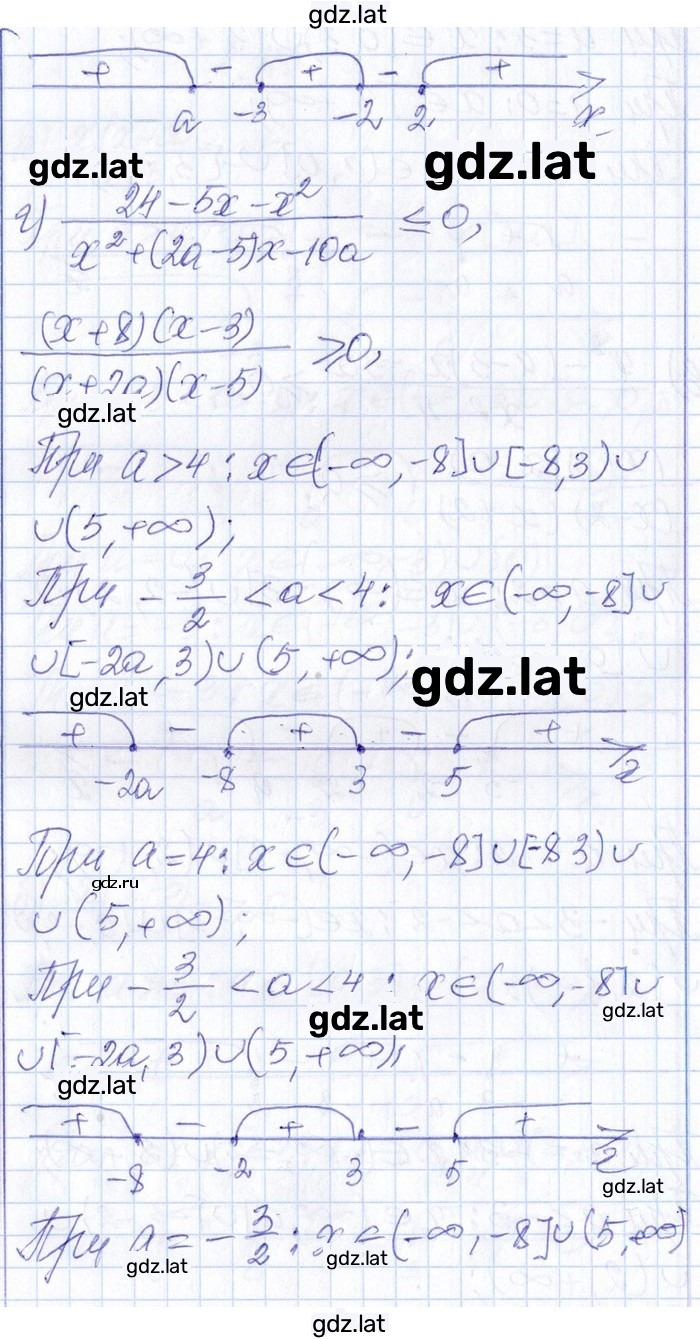 gdz.lat
+ - + - +
a -3 -2 2 x
gdz.lat
gdz.lat
г) (24 - 5x - x²) / (x² + (2a - 5)x - 10a) ≤ 0,
(x + 8)(x - 3) / (x + 2a)(x - 5) ≥ 0,
gdz.lat
При a > 4 : x ∈ (-∞, -8] ∪ [-8, 3) ∪
∪ (5, +∞);
При - 3/2 < a < 4 : x ∈ (-∞, -8] ∪
∪ [-2a, 3) ∪ (5, +∞);
gdz.lat
gdz.lat
+ - + - +
-2a -8 3 5 x
При a = 4 : x ∈ (-∞, -8] ∪ [-8 3) ∪
gdz.ru
∪ (5, +∞);
При - 3/2 < a < 4 : x ∈ (-∞, -8] ∪
gdz.lat
gdz.lat
∪ [-2a, 3) ∪ (5, +∞),
gdz.lat
+ - + - +
-8 -2 3 5 x
gdz.lat
При a = - 3/2 : x ∈ (-∞, -8] ∪ (5, +∞)
gdz.lat
gdz.lat
gdz.lat